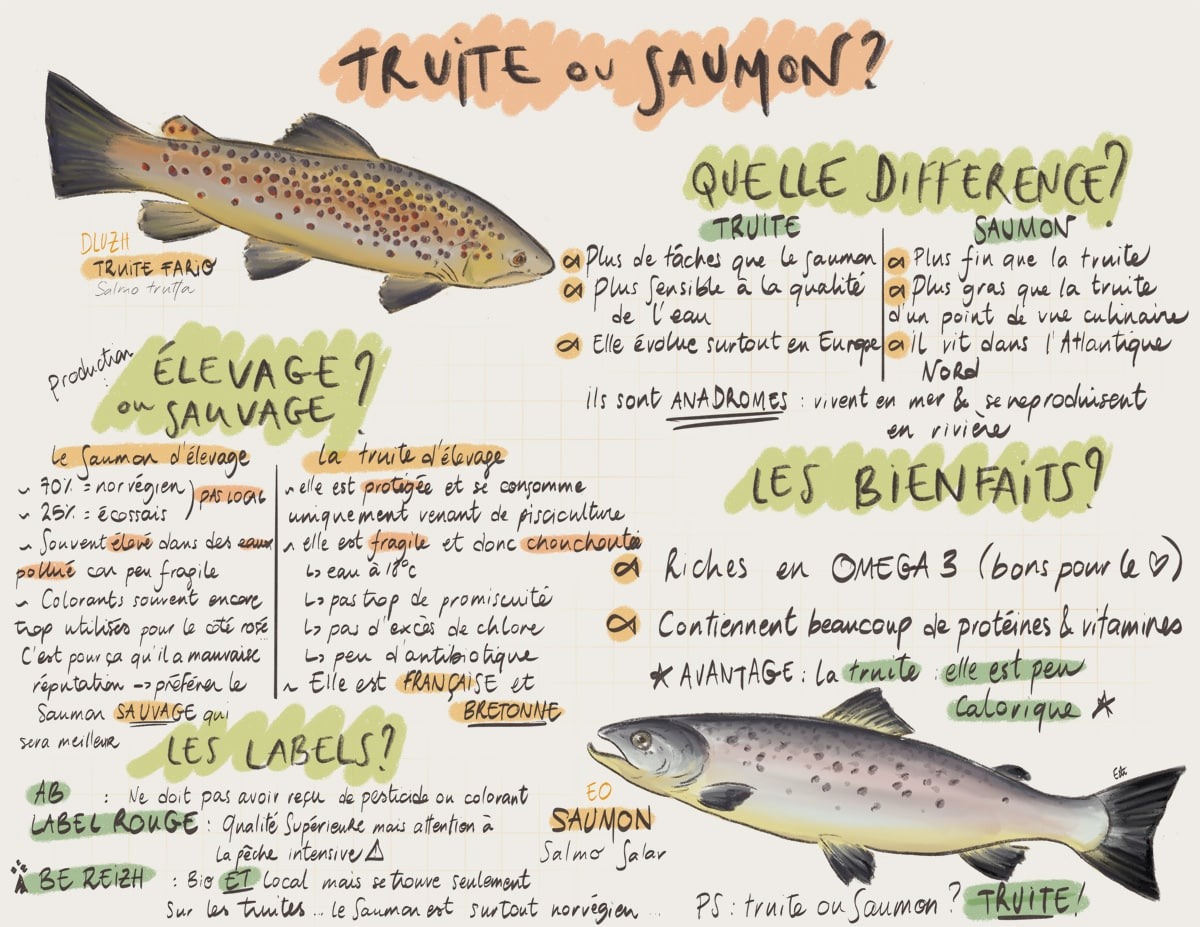 TRUITE OU SAUMON?
DLUZH
TRUITE FARIO
Salmo trutta
QUELLE DIFFERENCE?
TRUITE
Plus de tâches que le saumon
Plus sensible à la qualité
de l'eau
Elle évolue surtout en Europe
SAUMON
Plus fin que la truite
Plus gras que la truite
d'un point de vue culinaire
il vit dans l'Atlantique
Nord
ils sont ANADROMES : vivent en mer & se reproduisent
en rivière
production :
ÉLEVAGE ?
ou SAUVAGE
Le saumon d'élevage
~ 70% = norvégien
~ 25% = écossais
PAS LOCAL
~ Souvent élevé dans des eaux
pollué car peu fragile
~ Colorants souvent encore
trop utilisés pour le côté rosé...
C'est pour ça qu'il a mauvaise
réputation -> préférer le
Saumon SAUVAGE qui
sera meilleur
La truite d'élevage
~ elle est protégée et se consomme
uniquement venant de pisciculture
~ elle est fragile et donc chouchoutée
↳ eau à 18°C
↳ pas trop de promiscuité
↳ pas d'excès de chlore
↳ peu d'antibiotique
~ Elle est FRANÇAISE et
BRETONNE
LES BIENFAITS?
Riches en OMEGA 3 (bons pour le ♡)
Contiennent beaucoup de protéines & vitamines
★ AVANTAGE : la truite : elle est peu
Calorique ★
LES LABELS?
AB : Ne doit pas avoir reçu de pesticide ou colorant
LABEL ROUGE : Qualité Supérieure mais attention à
la pêche intensive ⚠
BE REIZH : Bio ET Local mais se trouve seulement
sur les truites... le Saumon est surtout norvégien ...
EO
SAUMON
Salmo Salar
PS : truite ou saumon ? TRUITE!